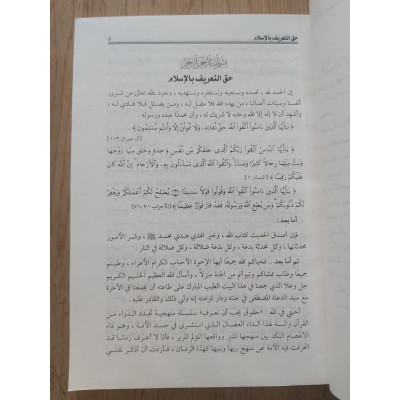 حق التعريف بالإسلام
٥
بسم الله الرحمن الرحيم
حق التعريف بالإسلام
إن الحمد لله، نحمده ونستعينه ونستغفره ونستهديه، ونعوذ بالله تعالى من شرور
أنفسنا وسيئات أعمالنا، من يهده الله فلا مضل له، ومن يضلل فلا هادي له،
وأشهد أن لا إله إلا الله وحده لا شريك له، وأن محمدًا عبده ورسوله.
﴿ يَا أَيُّهَا الَّذِينَ ءَامَنُوا اتَّقُوا اللَّهَ حَقَّ تُقَاتِهِ، وَلَا تَمُوتُنَّ إِلَّا وَأَنْتُمْ مُسْلِمُونَ ﴾
[آل عمران: ١٠٢]
﴿ يَا أَيُّهَا النَّاسُ اتَّقُوا رَبَّكُمُ الَّذِي خَلَقَكُمْ مِنْ نَفْسٍ وَاحِدَةٍ وَخَلَقَ مِنْهَا زَوْجَهَا
وَبَثَّ مِنْهُمَا رِجَالًا كَثِيرًا وَنِسَاءً وَاتَّقُوا اللَّهَ الَّذِي تَسَاءَلُونَ بِهِ وَالْأَرْحَامَ إِنَّ اللَّهَ كَانَ
عَلَيْكُمْ رَقِيبًا ﴾ [النساء: ١]
﴿ يَا أَيُّهَا الَّذِينَ ءَامَنُوا اتَّقُوا اللَّهَ وَقُولُوا قَوْلًا سَدِيدًا (٧٠) يُصْلِحْ لَكُمْ أَعْمَالَكُمْ وَيَغْفِرْ
لَكُمْ ذُنُوبَكُمْ وَمَنْ يُطِعِ اللَّهَ وَرَسُولَهُ فَقَدْ فَازَ فَوْزًا عَظِيمًا ﴾ [الأحزاب: ٧٠-٧١]
أما بعد:
فإن أصدق الحديث كتاب الله، وخير الهدي هدي محمد ﷺ، وشر الأمور
محدثاتها، وكل محدثة بدعة، وكل بدعة ضلالة، وكل ضلالة في النار.
ثم أما بعد.. فحياكم الله جميعًا أيها الإخوة الأحباب الكرام الأعزاء، وطبتم
جميعًا وطاب ممشاكم وتبوأتم من الجنة منزلاً، وأسأل الله العظيم الحليم الكريم
جل وعلا الذي جمعنا في هذا البيت الطيب المبارك على طاعته أن يجمعنا في الآخرة
مع سيد الدعاة المصطفى في جنته ودار كرامته إنه ولي ذلك والقادر عليه.
أحبتي في الله: «حقوق يجب أن تعرف» سلسلة منهجية تحدد الدواء من
القرآن والسنة لهذا الداء العضال الذي استشرى في جسد الأمة، وهو داء
الانفصام النكد بين منهجها المنير وواقعها المؤلم المرير، فأنا لا أعرف زمانًا قد
انحرفت فيه الأمة عن منهج ربها ونبيها كهذا الزمان، فأردت أن أذكر نفسي